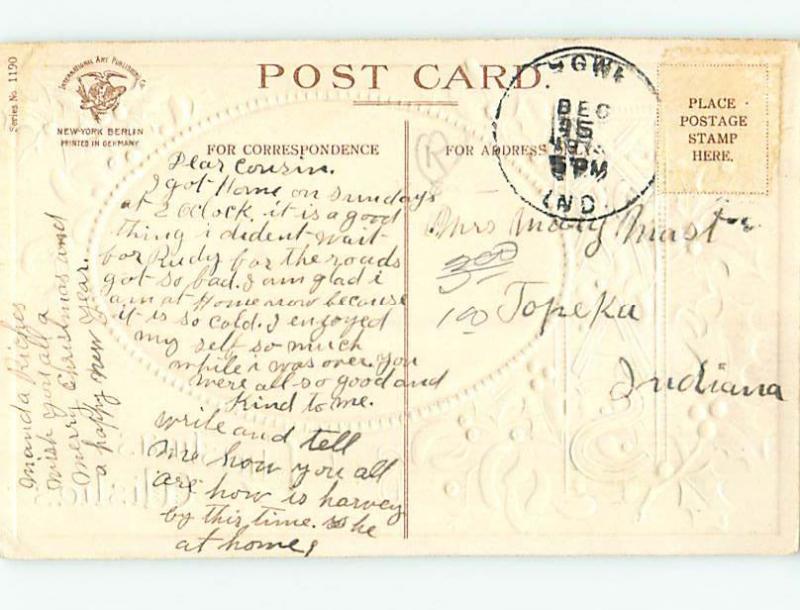 Series No. 1190
INTERNATIONAL ART PUBLISHING Co.
NEW-YORK BERLIN
PRINTED IN GERMANY
POST CARD.
FOR CORRESPONDENCE
FOR ADDRESS ONLY
PLACE
POSTAGE
STAMP
HERE.
DEC
5 PM
IND.
Dear Cousin.
I got Home on Sundays
at 2 Oclock. it is a good
thing i dident wait
for Rudy for the roads
got so bad. I am glad i
am at Home now because
it is so cold. I enjoyed
my self so much
while i was over. you
were all so good and
Kind to me.
write and tell
me how you all
are how is harvey
by this time. is he
at home,
Manda
wish you all a
merry Christmas and
a happy new year.
Mrs Mary Mast
300
100
Topeka
Indiana